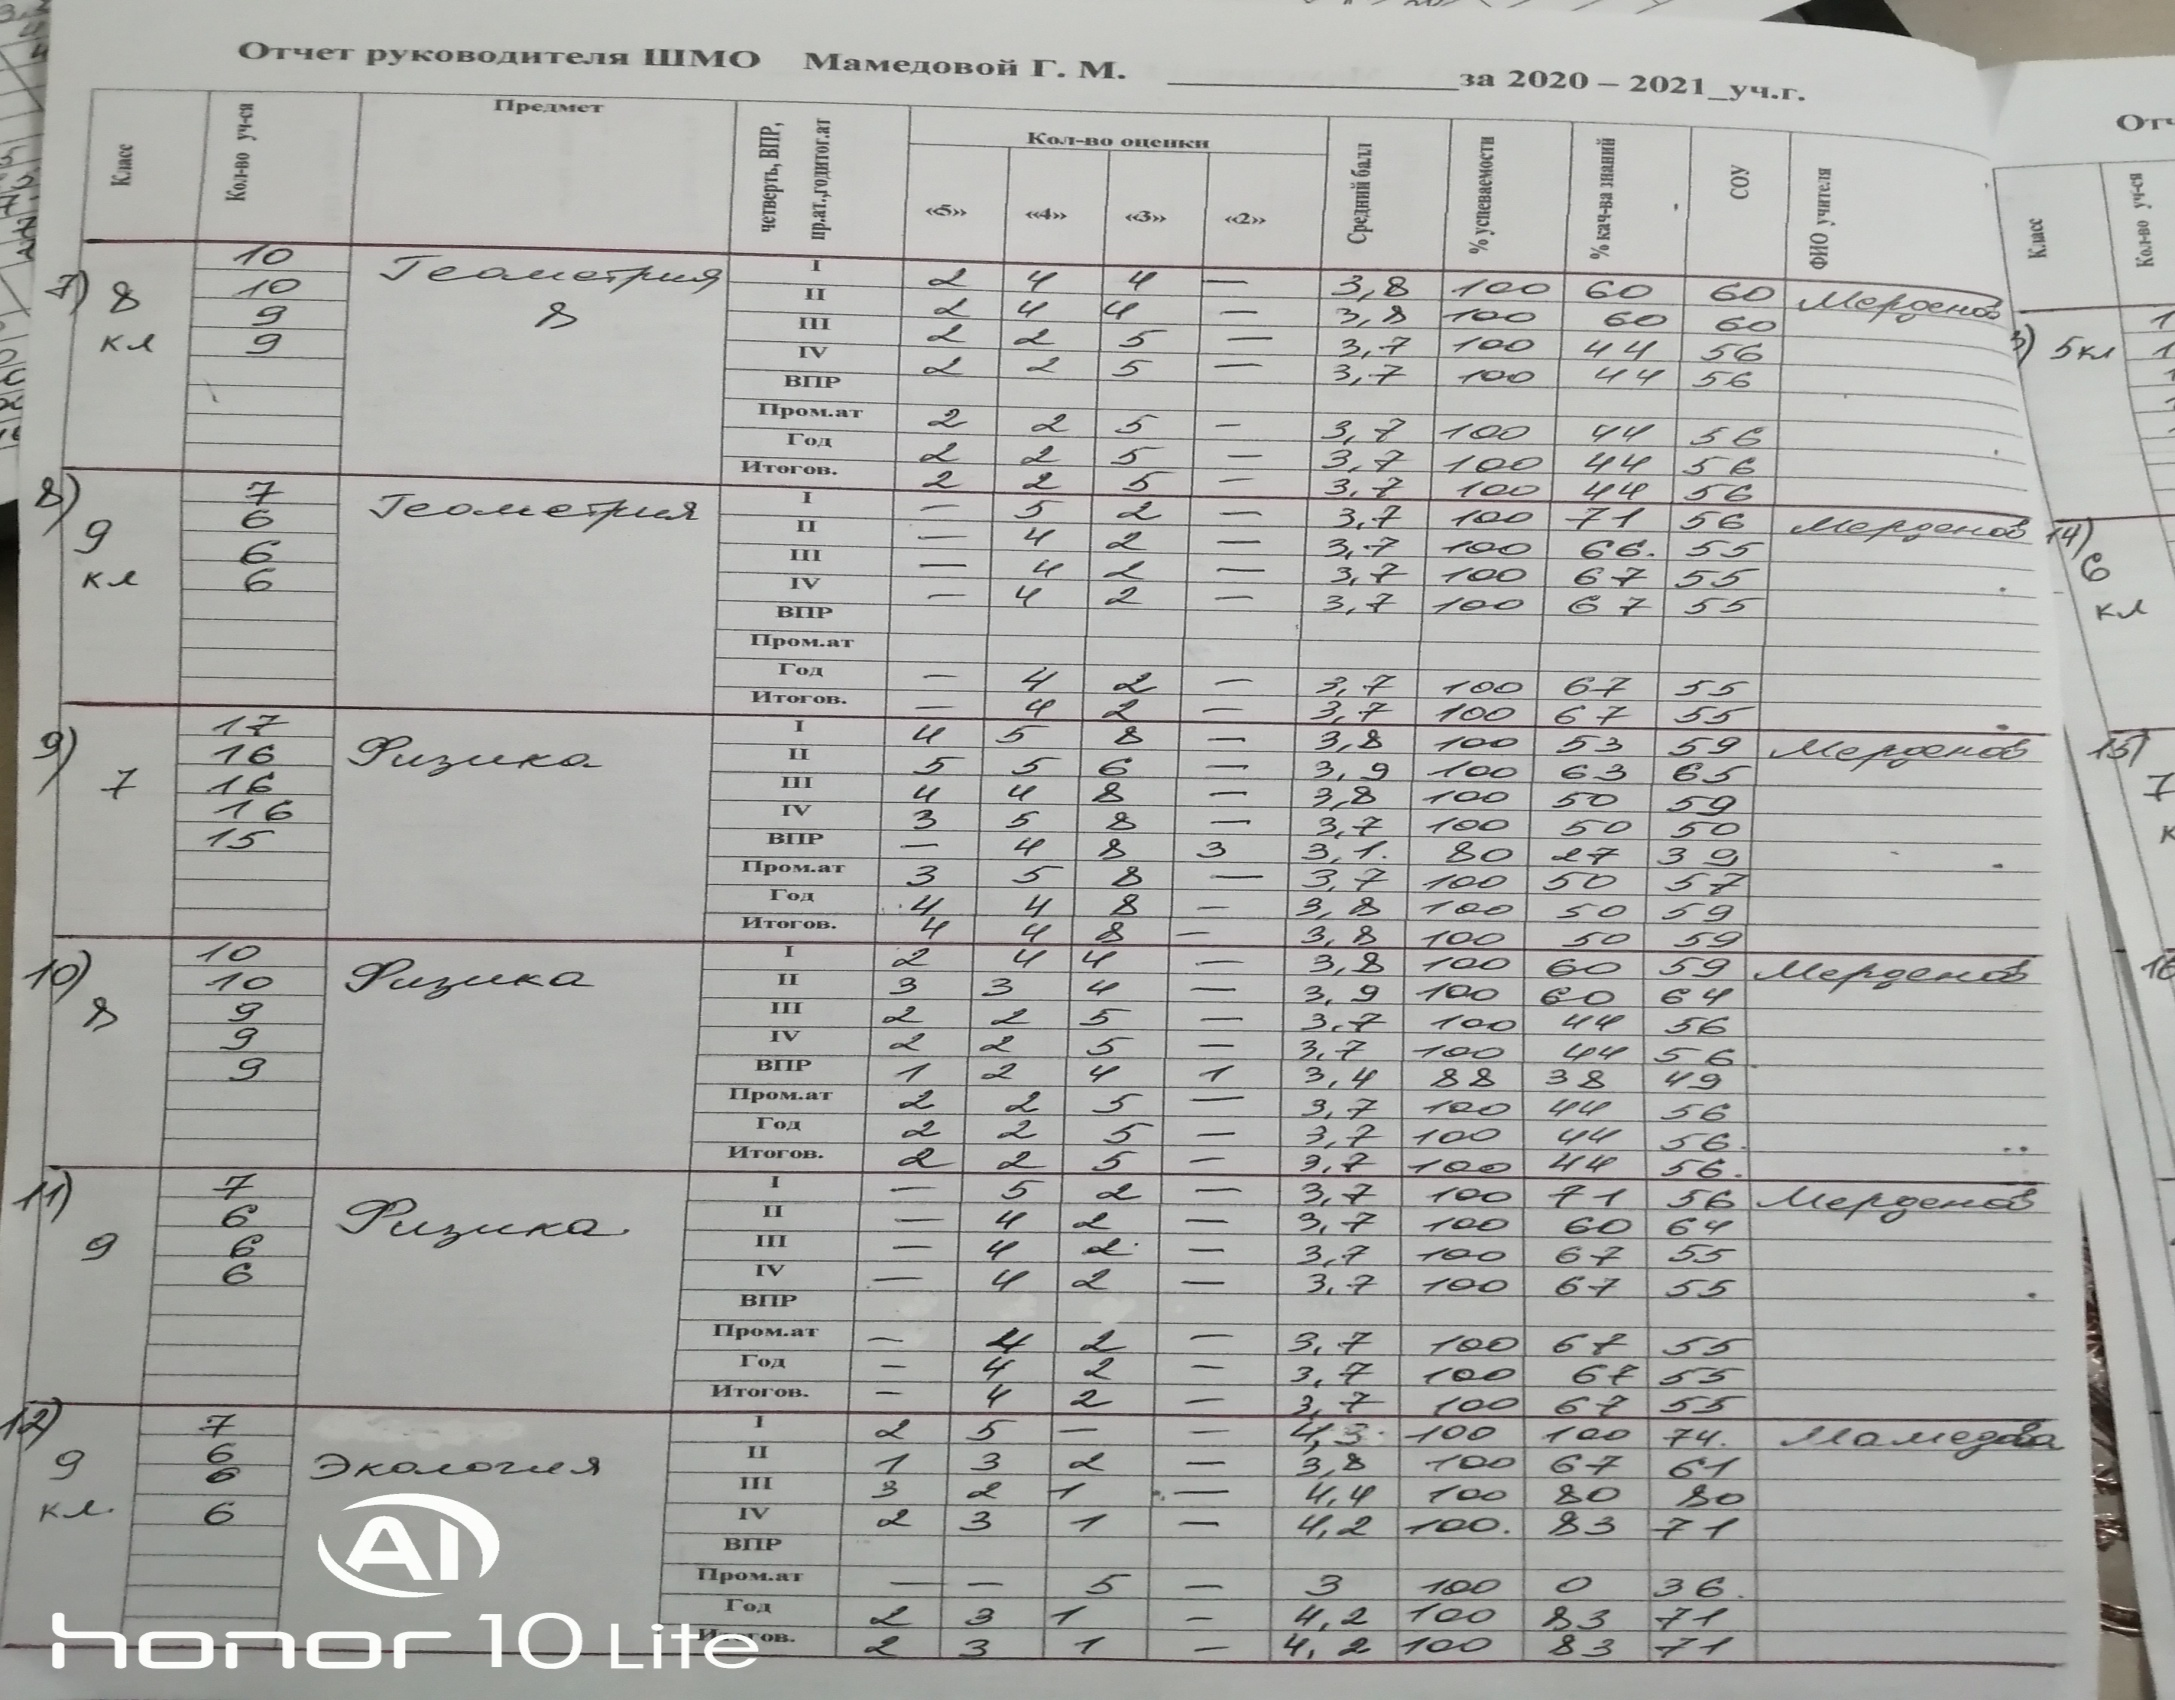 Отчет руководителя ШМО Мамедовой Г. М. ____________________за 2020 – 2021_уч.г.
Класс Кол-во уч-ся Предмет четверть, ВПР, пр.ат.,годитог.ат Кол-во оценки «5» «4» «3» «2» Средний балл % успеваемости % кач-ва знаний СОУ ФИО учителя
7) 8 кл Геометрия 8 Мерденов
10 I 2 4 4 — 3,8 100 60 60
10 II 2 4 4 — 3,8 100 60 60
9 III 2 2 5 — 3,7 100 44 56
9 IV 2 2 5 — 3,7 100 44 56
ВПР
Пром.ат 2 2 5 – 3,7 100 44 56
Год 2 2 5 – 3,7 100 44 56
Итогов. 2 2 5 – 3,7 100 44 56
8) 9 кл Геометрия Мерденов
7 I — 5 2 — 3,7 100 71 56
6 II — 4 2 — 3,7 100 66. 55
6 III — 4 2 — 3,7 100 67 55
6 IV – 4 2 – 3,7 100 67 55
ВПР
Пром.ат
Год – 4 2 – 3,7 100 67 55
Итогов. – 4 2 – 3,7 100 67 55
9) 7 Физика Мерденов
17 I 4 5 8 — 3,8 100 53 59
16 II 5 5 6 — 3,9 100 63 65
16 III 4 4 8 — 3,8 100 50 59
16 IV 3 5 8 — 3,7 100 50 50
15 ВПР — 4 8 3 3,1. 80 27 39
Пром.ат 3 5 8 — 3,7 100 50 57
Год 4 4 8 – 3,8 100 50 59
Итогов. 4 4 8 – 3,8 100 50 59
10) 8 Физика Мерденов
10 I 2 4 4 — 3,8 100 60 59
10 II 3 3 4 — 3,9 100 60 64
9 III 2 2 5 — 3,7 100 44 56
9 IV 2 2 5 – 3,7 100 44 56
9 ВПР 1 2 4 1 3,4 88 38 49
Пром.ат 2 2 5 — 3,7 100 44 56
Год 2 2 5 – 3,7 100 44 56.
Итогов. 2 2 5 – 3,7 100 44 56.
11) 9 Физика. Мерденов
7 I — 5 2 — 3,7 100 71 56
6 II — 4 2 — 3,7 100 60 64
6 III – 4 2 – 3,7 100 67 55
6 IV — 4 2 — 3,7 100 67 55
ВПР
Пром.ат — 4 2 — 3,7 100 67 55
Год – 4 2 – 3,7 100 67 55
Итогов. – 4 2 – 3,7 100 67 55
12) 9 кл. Экология Мамедова
7 I 2 5 — – 4,3 100 100 74.
6 II 1 3 2 – 3,8 100 67 61
6 III 3 2 1 — 4,4 100 80 80
6 IV 2 3 1 – 4,2 100. 83 71
ВПР
Пром.ат — — 5 – 3 100 0 36.
Год 2 3 1 – 4,2 100 83 71
Итогов. 2 3 1 – 4,2 100 83 71
Класс Кол-во уч-ся
5кл
14) 6 кл
15) 7
16
AI
honor 10 Lite